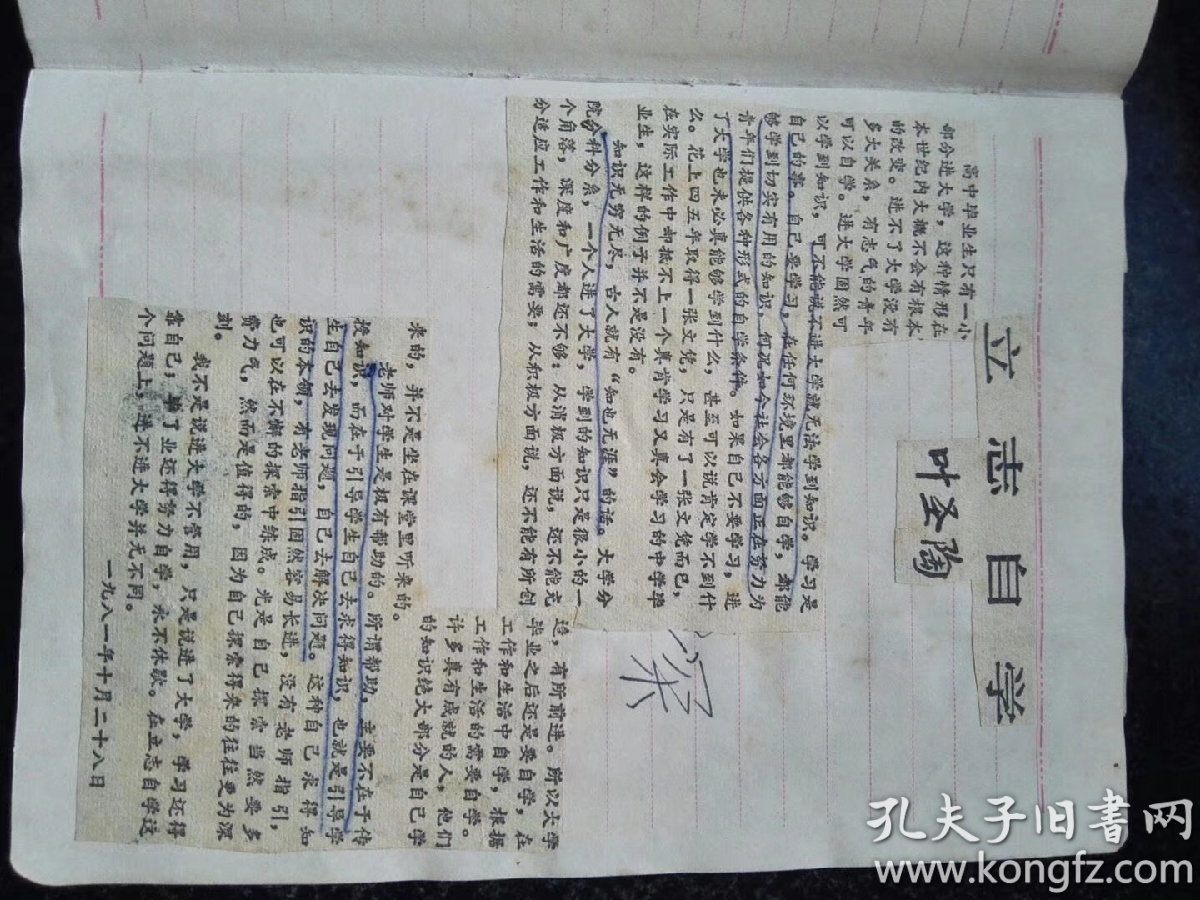 立志自学
叶圣陶
高中毕业生只有一小
部分进大学，这种情形在
本世纪内大概不会有根本
的改变。进不了大学没有
多大关系，有志气的青年
可以自学。进大学固然可
以学到知识，可不能说不进大学就无法学到知识。学习是
自己的事。自己要学习，在任何环境里都能够自学，都能
够学到切实有用的知识，何况如今社会各方面正在努力为
青年们提供各种形式的自学条件。如果自己不要学习，进
了大学也未必真能够学到什么，甚至可以说肯定学不到什
么。花上四五年取得一张文凭，只是有了一张文凭而已，
在实际工作中却抵不上一个真肯学习又真会学习的中学毕
业生，这样的例子并不是没有。
知识无穷无尽，古人就有“知也无涯”的话。大学分
院分科分系，一个人进了大学，学到的知识只是很小的一
个角落，深度和广度都还不够：从消极方面说，还不能充
分适应工作和生活的需要；从积极方面说，还不能有所创
造，有所前进。所以大学
毕业之后还是要自学，在
工作和生活中自学，根据
工作和生活的需要自学。
许多真有成就的人，他们
的知识绝大部分是自己学
来的，并不是坐在课堂里听来的。
老师对学生是极有帮助的。所谓帮助，主要不在于传
授知识，而在于引导学生自己去求得知识，也就是引导学
生自己去发现问题，自己去解决问题。这种自己求得知
识的本领，有老师指引固然容易长进，没有老师指引，
也可以在不懈的探索中练成。光是自己探索当然要多
费力气，然而是值得的，因为自己探索得来的往往更为深
到。
我不是说进大学不管用，只是说进了大学，学习还得
靠自己，毕了业还得努力自学，永不休歇。在立志自学这
个问题上，进不进大学并无不同。
一九八一年十月二十八日
深
孔夫子旧书网
www.kongfz.com